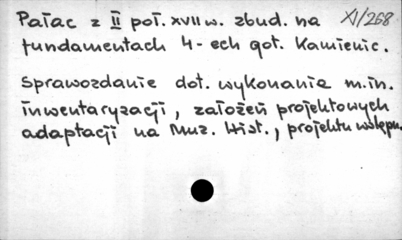 Pałac z II poł. XVII w. zbud. na XI/268
fundamentach 4-ech got. kamienic.
Sprawozdanie dot. wykonania m.in.
inwentaryzacji, założeń projektowych
adaptacji na Muz. Hist., projektu wstępn.